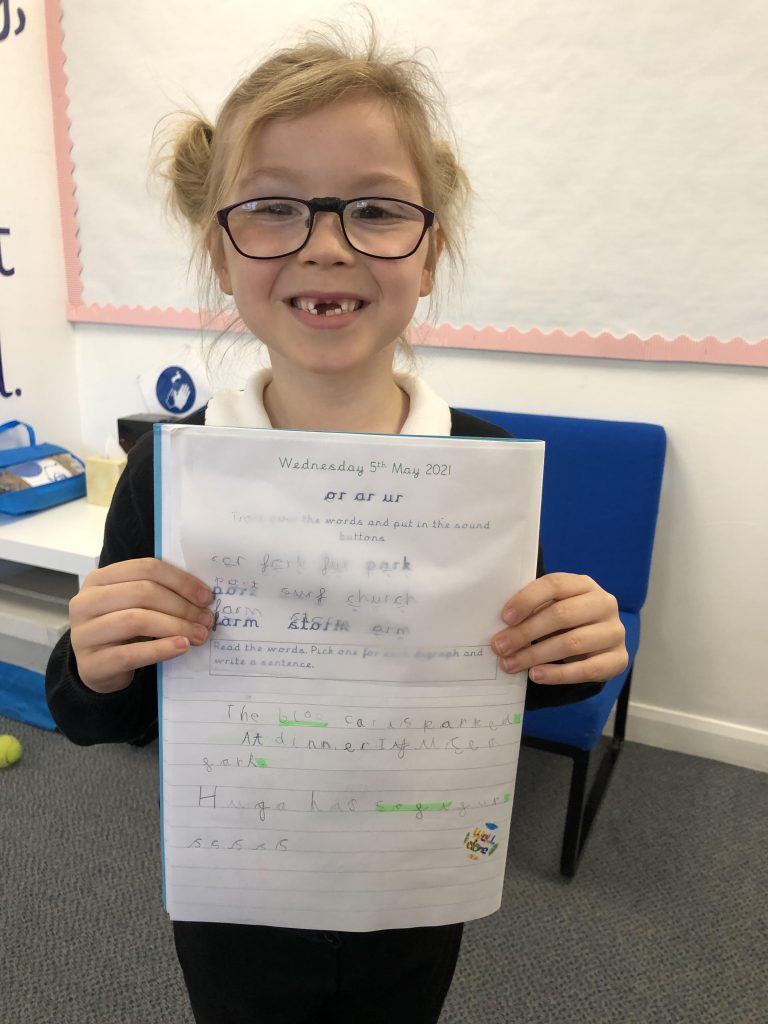 Wednesday 5th May 2021
or ar ur
Trace over the words and put in the sound
buttons
car fork fur park
port surf church
farm arm
Read the words. Pick one for each digraph and
write a sentence.
The bloo car is parked
At dinner I
Hugo has fur
s s s s s